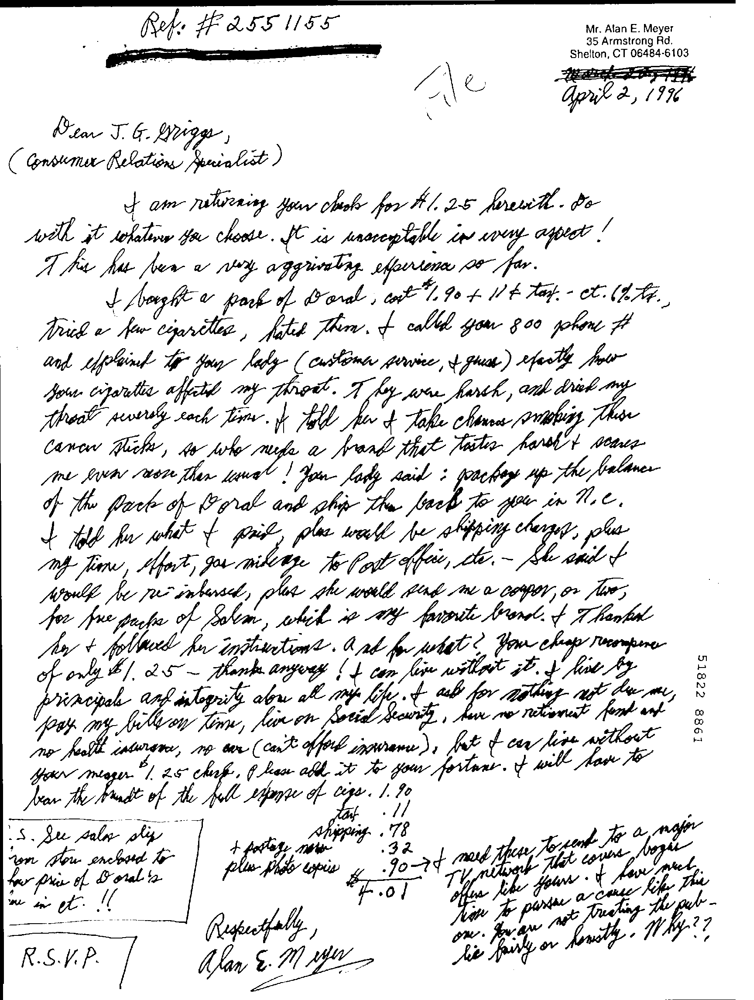 Ref: # 2551155
Mr. Alan E. Meyer
35 Armstrong Rd.
Shelton, CT 06484-6103
April 2, 1996
File
Dear J. G. Griggs,
(Consumer Relations Specialist)
I am returning your check for $1.25 herewith. Do
with it whatever you choose. It is unacceptable in every aspect!
This has been a very aggrivating experience so far.
I bought a pack of Doral, cost $1.90 + 11¢ tax. - ct. 6% tx.,
tried a few cigarettes, hated them. I called your 800 phone #
and explained to your lady (customer service, I guess) exactly how
your cigarettes affected my throat. They were harsh, and dried my
throat severely each time. I told her I take chances smoking these
cancer sticks, so who needs a brand that tastes harsh + scares
me even more than usual! Your lady said: package up the balance
of the pack of Doral and ship them back to you in N.C.
I told her what I paid, plus would be shipping charges, plus
my time, effort, gas mileage to Post office, etc. - She said I
would be re-imbursed, plus she would send me a coupon, or two,
for free packs of Salem, which is my favorite brand. I Thanked
her + followed her instructions. And for what? Your cheap recompence
of only $1.25 - thanks anyway! I can live without it. I live by
principals and integrity above all my life. I ask for nothing not due me,
pay my bills on time, live on Social Security, have no retirement fund and
no health insurance, no car (can't afford insurance), but I can live without
your meager $1.25 check. Please add it to your fortune. I will have to
bear the brundt of the full expense of cigs. 1.90
tax .11
shipping .78
+ postage now .32
plus photo copies .90 → I need these to send to a major
$4.01
TV network that covers bogus
offers like yours. I have much
time to pursue a cause like this
one. You are not treating the pub-
lic fairly or honestly. Why??
.S. See sales slip
rom store enclosed to
how price of Doral's
me in ct. !!
R.S.V.P.
Respectfully,
Alan E. Meyer
51822 8861